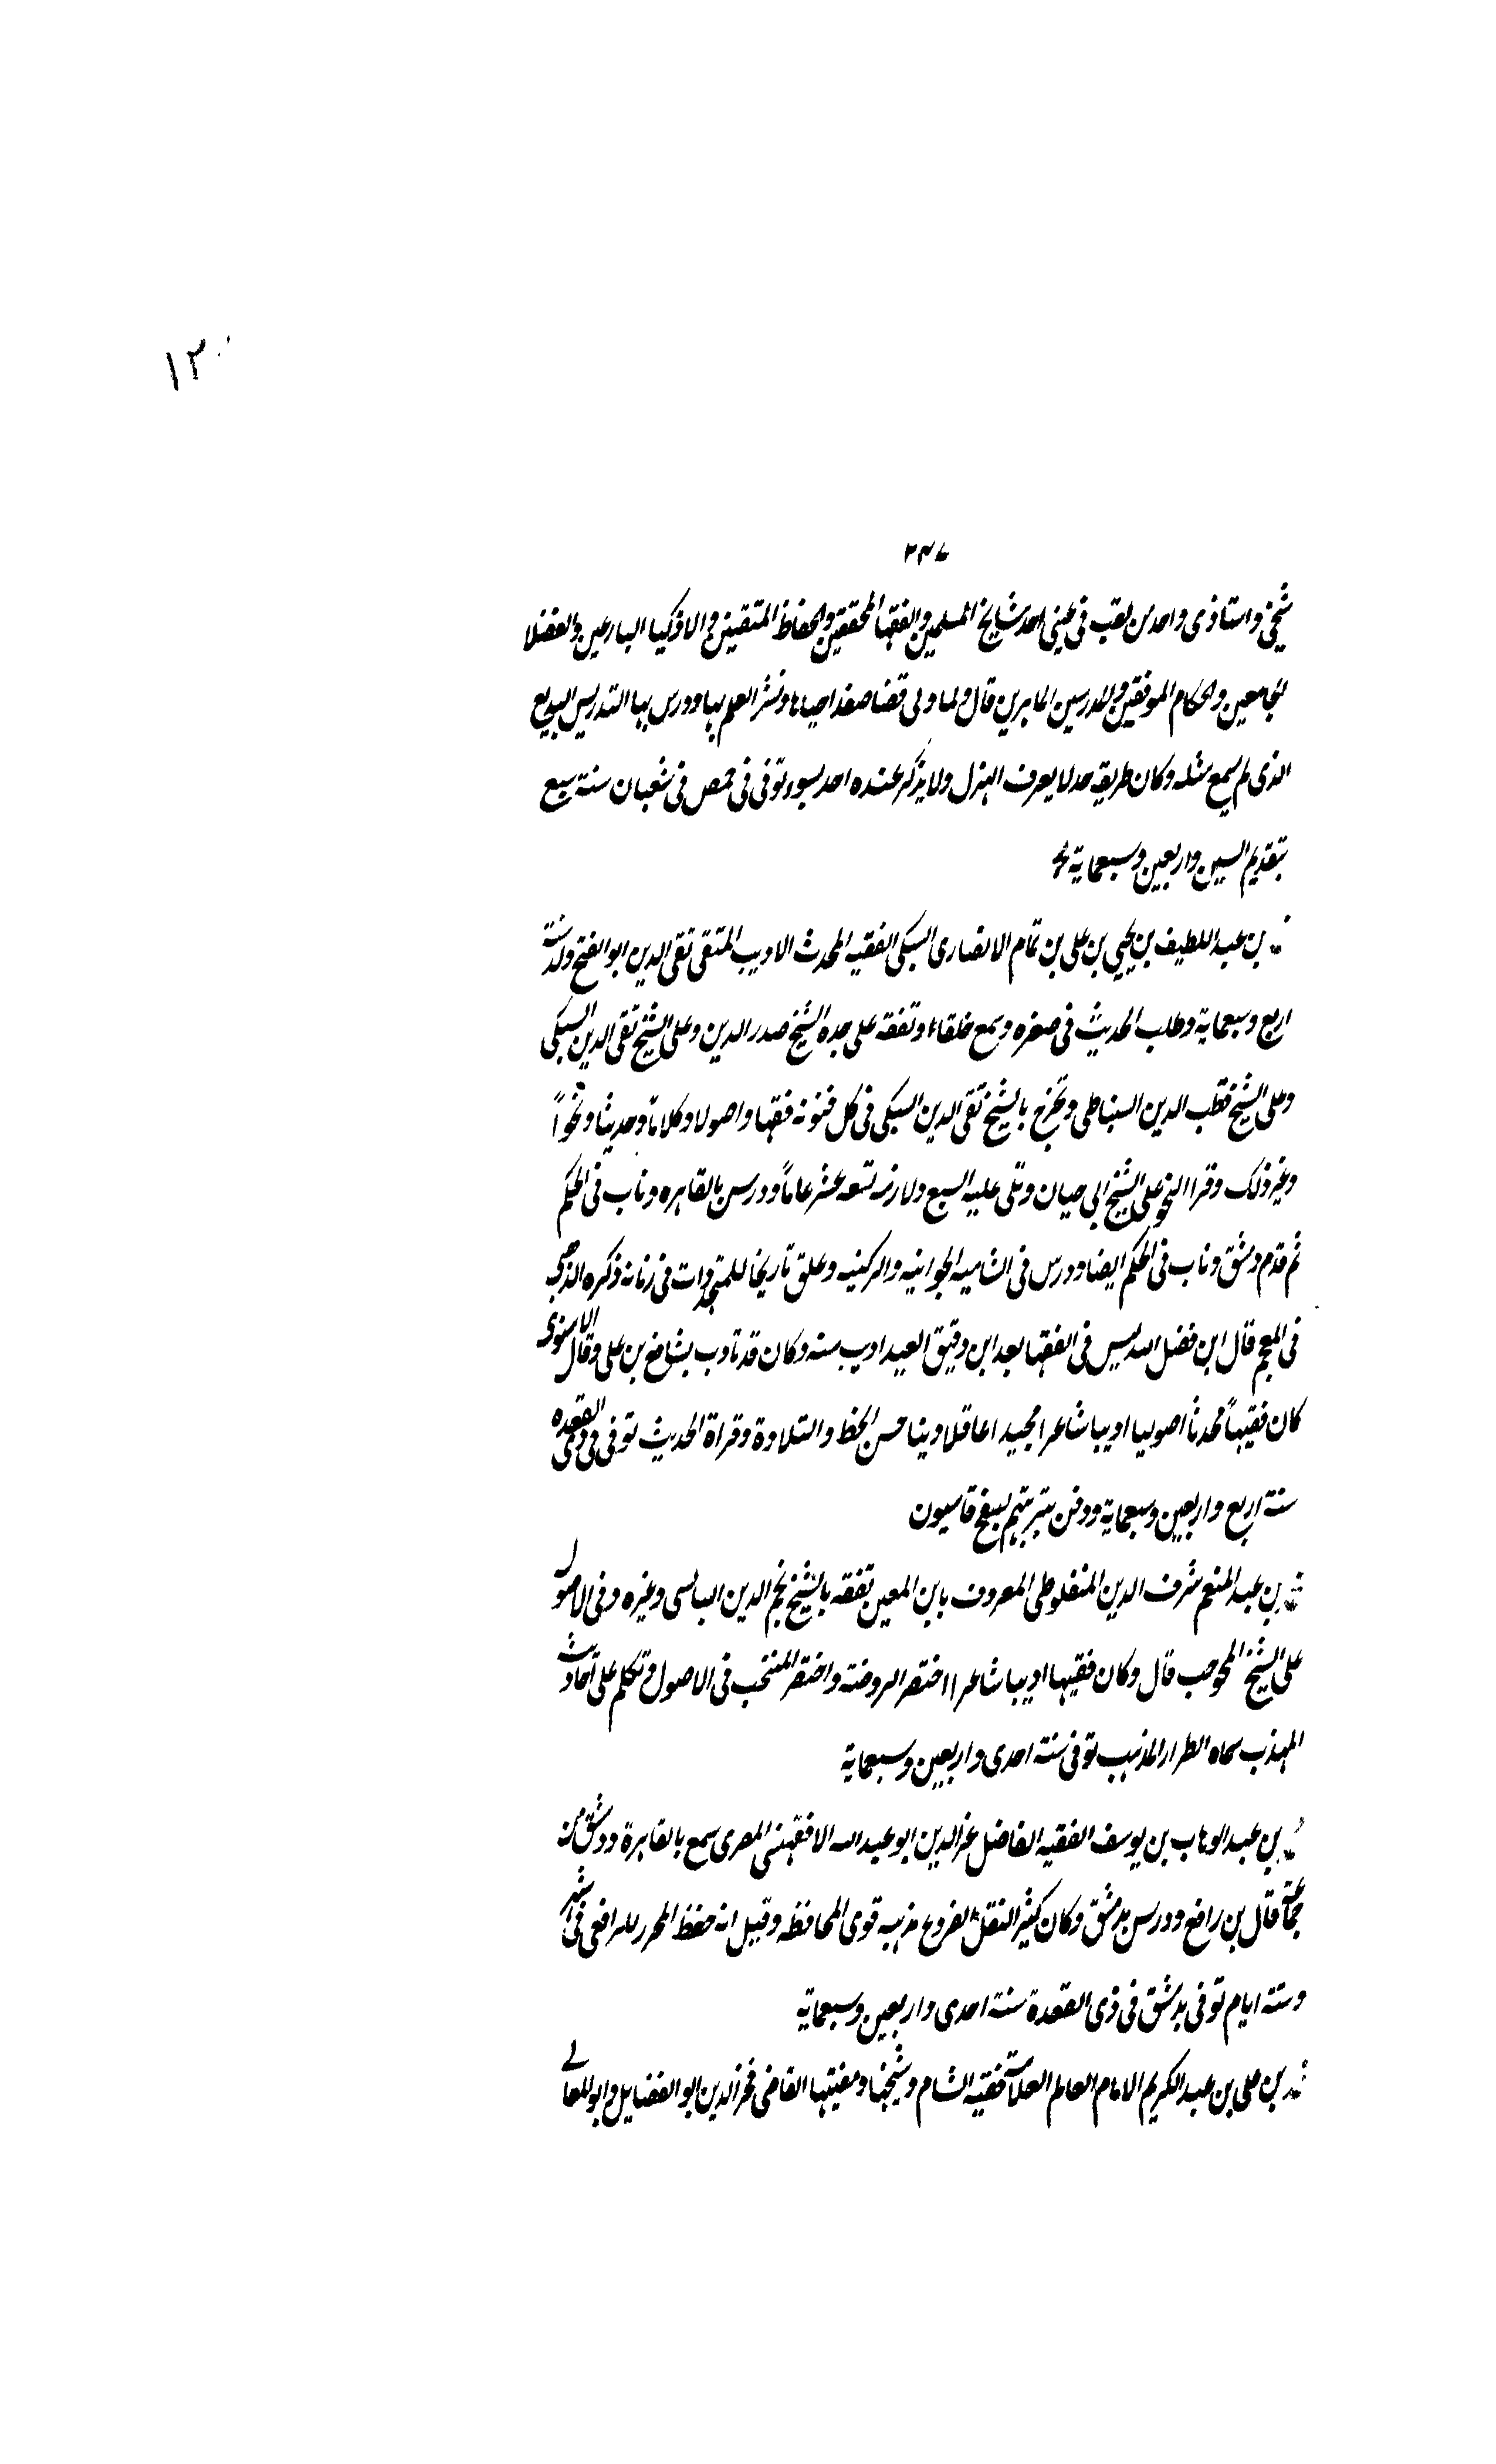 ١٢٠
٢٣٧
شيخي واستاذى واحد من لقب فى عينى احد مشايخ المسلمين والفقها المحققين والحفاظ المتقنين والاذكيا البارعين والفضلا
الجامعين والحكام الموفقين والمدرسين الماهرين قال ولما ولى قضا صفد احياها ونشر العلم بها ودرس بها التدريس البديع
الذى لم يسمع مثله وكان طريقه حد لا يعرف الهزل ولا يذكر عنده احد بسوء توفى فى حمص فى شعبان سنة سبع
بتقديم السين واربعين وسبعماية
بن عبد اللطيف بن يحيى بن على بن تمام الانصارى السبكى الفقيه المحدث الاديب المتقى تقى الدين ابو الفتح ولد سنة
اربع وسبعماية وطلب الحديث فى صغره وسمع خلقاء وتفقه على جده الشيخ صدر الدين وعلى الشيخ تقى الدين السبكى
وعلى الشيخ قطب الدين السنباطى وتخرج بالشيخ تقى الدين السبكى فى كل فنونه فقها واصولا وكلاما وحديثا ونحواً
وغير ذلك وقرا النحو على الشيخ ابى حيان وتلى عليه السبع ولازمه تسعه عشر عاماً ودرس بالقاهره وناب فى الحكم
ثم قدم دمشق وناب فى الحكم ايضا ودرس فى الشاميه الجوانيه والركنيه وعلق تاريخا للمتجددات فى زمانه ذكره الذهبى
فى المعجم قال ابن فضل الله ليس فى الفقها بعد ابن دقيق العيد ادب منه وكان قد تادب بشافع بن على وقال الاسنوى
كان فقيهاً محدثا اصوليا اديبا شاعرا مجيدا عاقلا دينا حسن الخط والتلاوة وقراة الحديث توفى فى ذى القعده
سنة اربع واربعين وسبعماية ودفن بتربتهم بسفح قاسيون
بن عبد المنعم شرف الدين المنفلوطى المعروف بابن المعين تفقه بالشيخ نجم الدين البالسى وغيره وفى الاصول
على الشيخ المحوجب قال وكان فقيها اديبا شاعرا اختصر الروضة واختصر المنتخب فى الاصول وتكلم على احاديث
المهذب سماه الطراز المذهب توفى سنة احدى واربعين وسبعماية
بن عبد الوهاب بن يوسف الفقيه الفاضل عز الدين ابو عبد الله الاقفهسى المصرى سمع بالقاهرة ودمشق من
جماعة قال بن رافع ودرس بدمشق وكان كثير النقل لفروع مذهبه قوى المحافظه وقيل انه حفظ المحرر للرافعى فى شهر
وستة ايام توفى بدمشق فى ذى القعدة سنة احدى واربعين وسبعماية
بن على بن عبد الكريم الامام العالم العلامة فقيه الشام وشيخها ومفتيها القاضى فخر الدين ابو الفضايل وابو المعالى